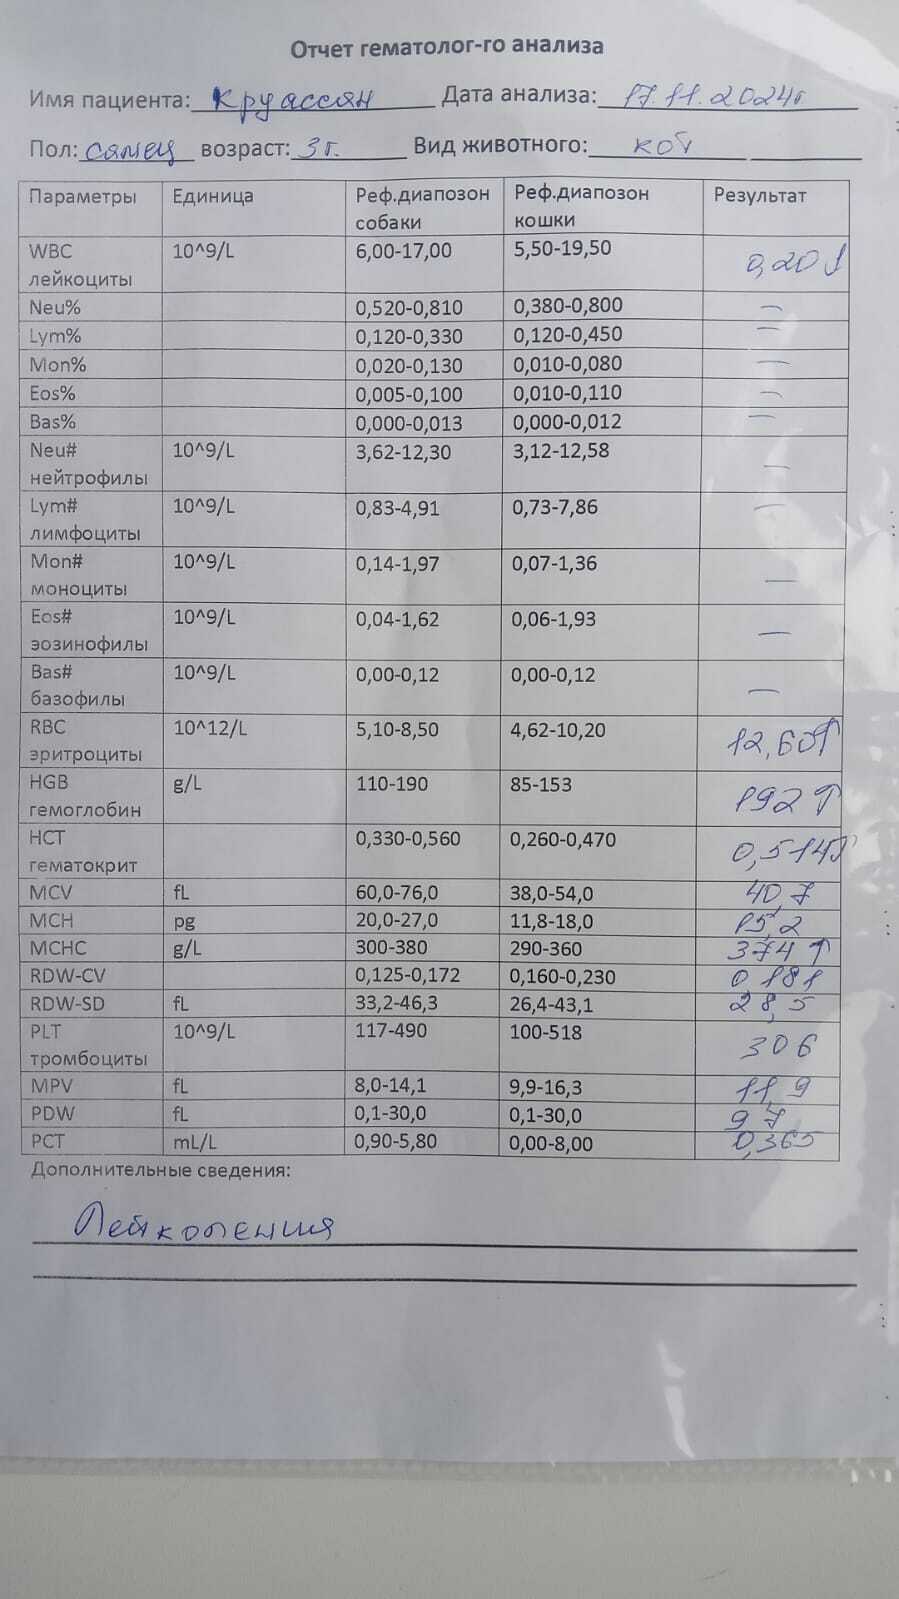 Отчет гематолог-го анализа
Имя пациента: Круассан Дата анализа: 17.11.2024г.
Пол: самец возраст: 3г. Вид животного: кот
Параметры Единица Реф.диапозон собаки Реф.диапозон кошки Результат
WBC лейкоциты 10^9/L 6,00-17,00 5,50-19,50 0,20↓
Neu% 0,520-0,810 0,380-0,800 —
Lym% 0,120-0,330 0,120-0,450 —
Mon% 0,020-0,130 0,010-0,080 —
Eos% 0,005-0,100 0,010-0,110 —
Bas% 0,000-0,013 0,000-0,012 —
Neu# нейтрофилы 10^9/L 3,62-12,30 3,12-12,58 —
Lym# лимфоциты 10^9/L 0,83-4,91 0,73-7,86 —
Mon# моноциты 10^9/L 0,14-1,97 0,07-1,36 —
Eos# эозинофилы 10^9/L 0,04-1,62 0,06-1,93 —
Bas# базофилы 10^9/L 0,00-0,12 0,00-0,12 —
RBC эритроциты 10^12/L 5,10-8,50 4,62-10,20 12,60↑
HGB гемоглобин g/L 110-190 85-153 192↑
HCT гематокрит 0,330-0,560 0,260-0,470 0,514↑
MCV fL 60,0-76,0 38,0-54,0 40,7
MCH pg 20,0-27,0 11,8-18,0 15,2
MCHC g/L 300-380 290-360 374↑
RDW-CV 0,125-0,172 0,160-0,230 0 181
RDW-SD fL 33,2-46,3 26,4-43,1 28,5
PLT тромбоциты 10^9/L 117-490 100-518 306
MPV fL 8,0-14,1 9,9-16,3 11,9
PDW fL 0,1-30,0 0,1-30,0 9 7
PCT mL/L 0,90-5,80 0,00-8,00 0,365
Дополнительные сведения:
Лейкопения